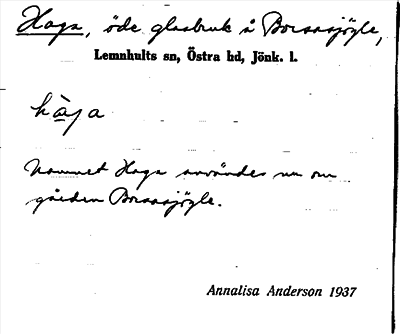 Haga, öde glasbruk å Borsasjögle,
Lemnhults sn, Östra hd, Jönk. l.
hàga
Namnet Haga användes nu om
gården Borsasjögle.
Annalisa Anderson 1937